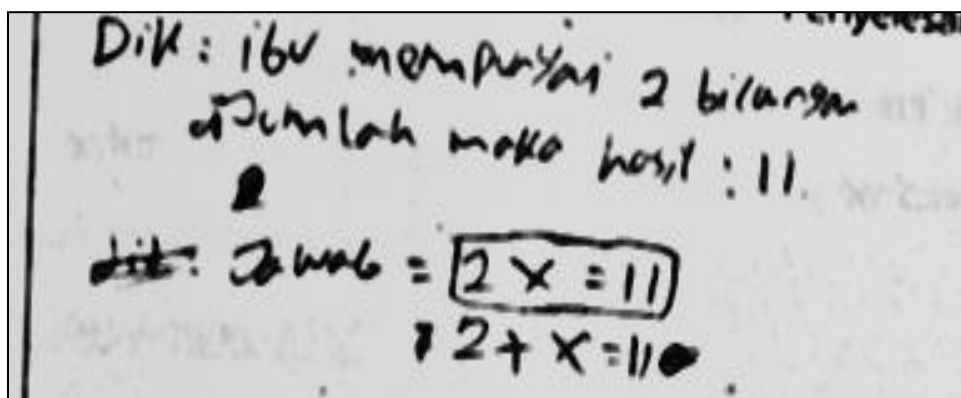 Penyelesai
Dik : ibu mempunyai 2 bilangan
di Jumlah maka hasil : 11.
dit : Jawab = 2 x = 11
2 + x = 11